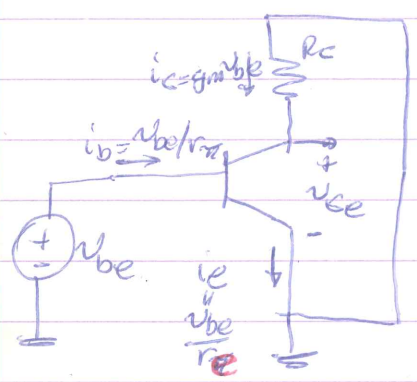 Rc
ic=gmvbe
ib=vbe/rπ
+
vce
-
+
-
vbe
ie
=
vbe
re